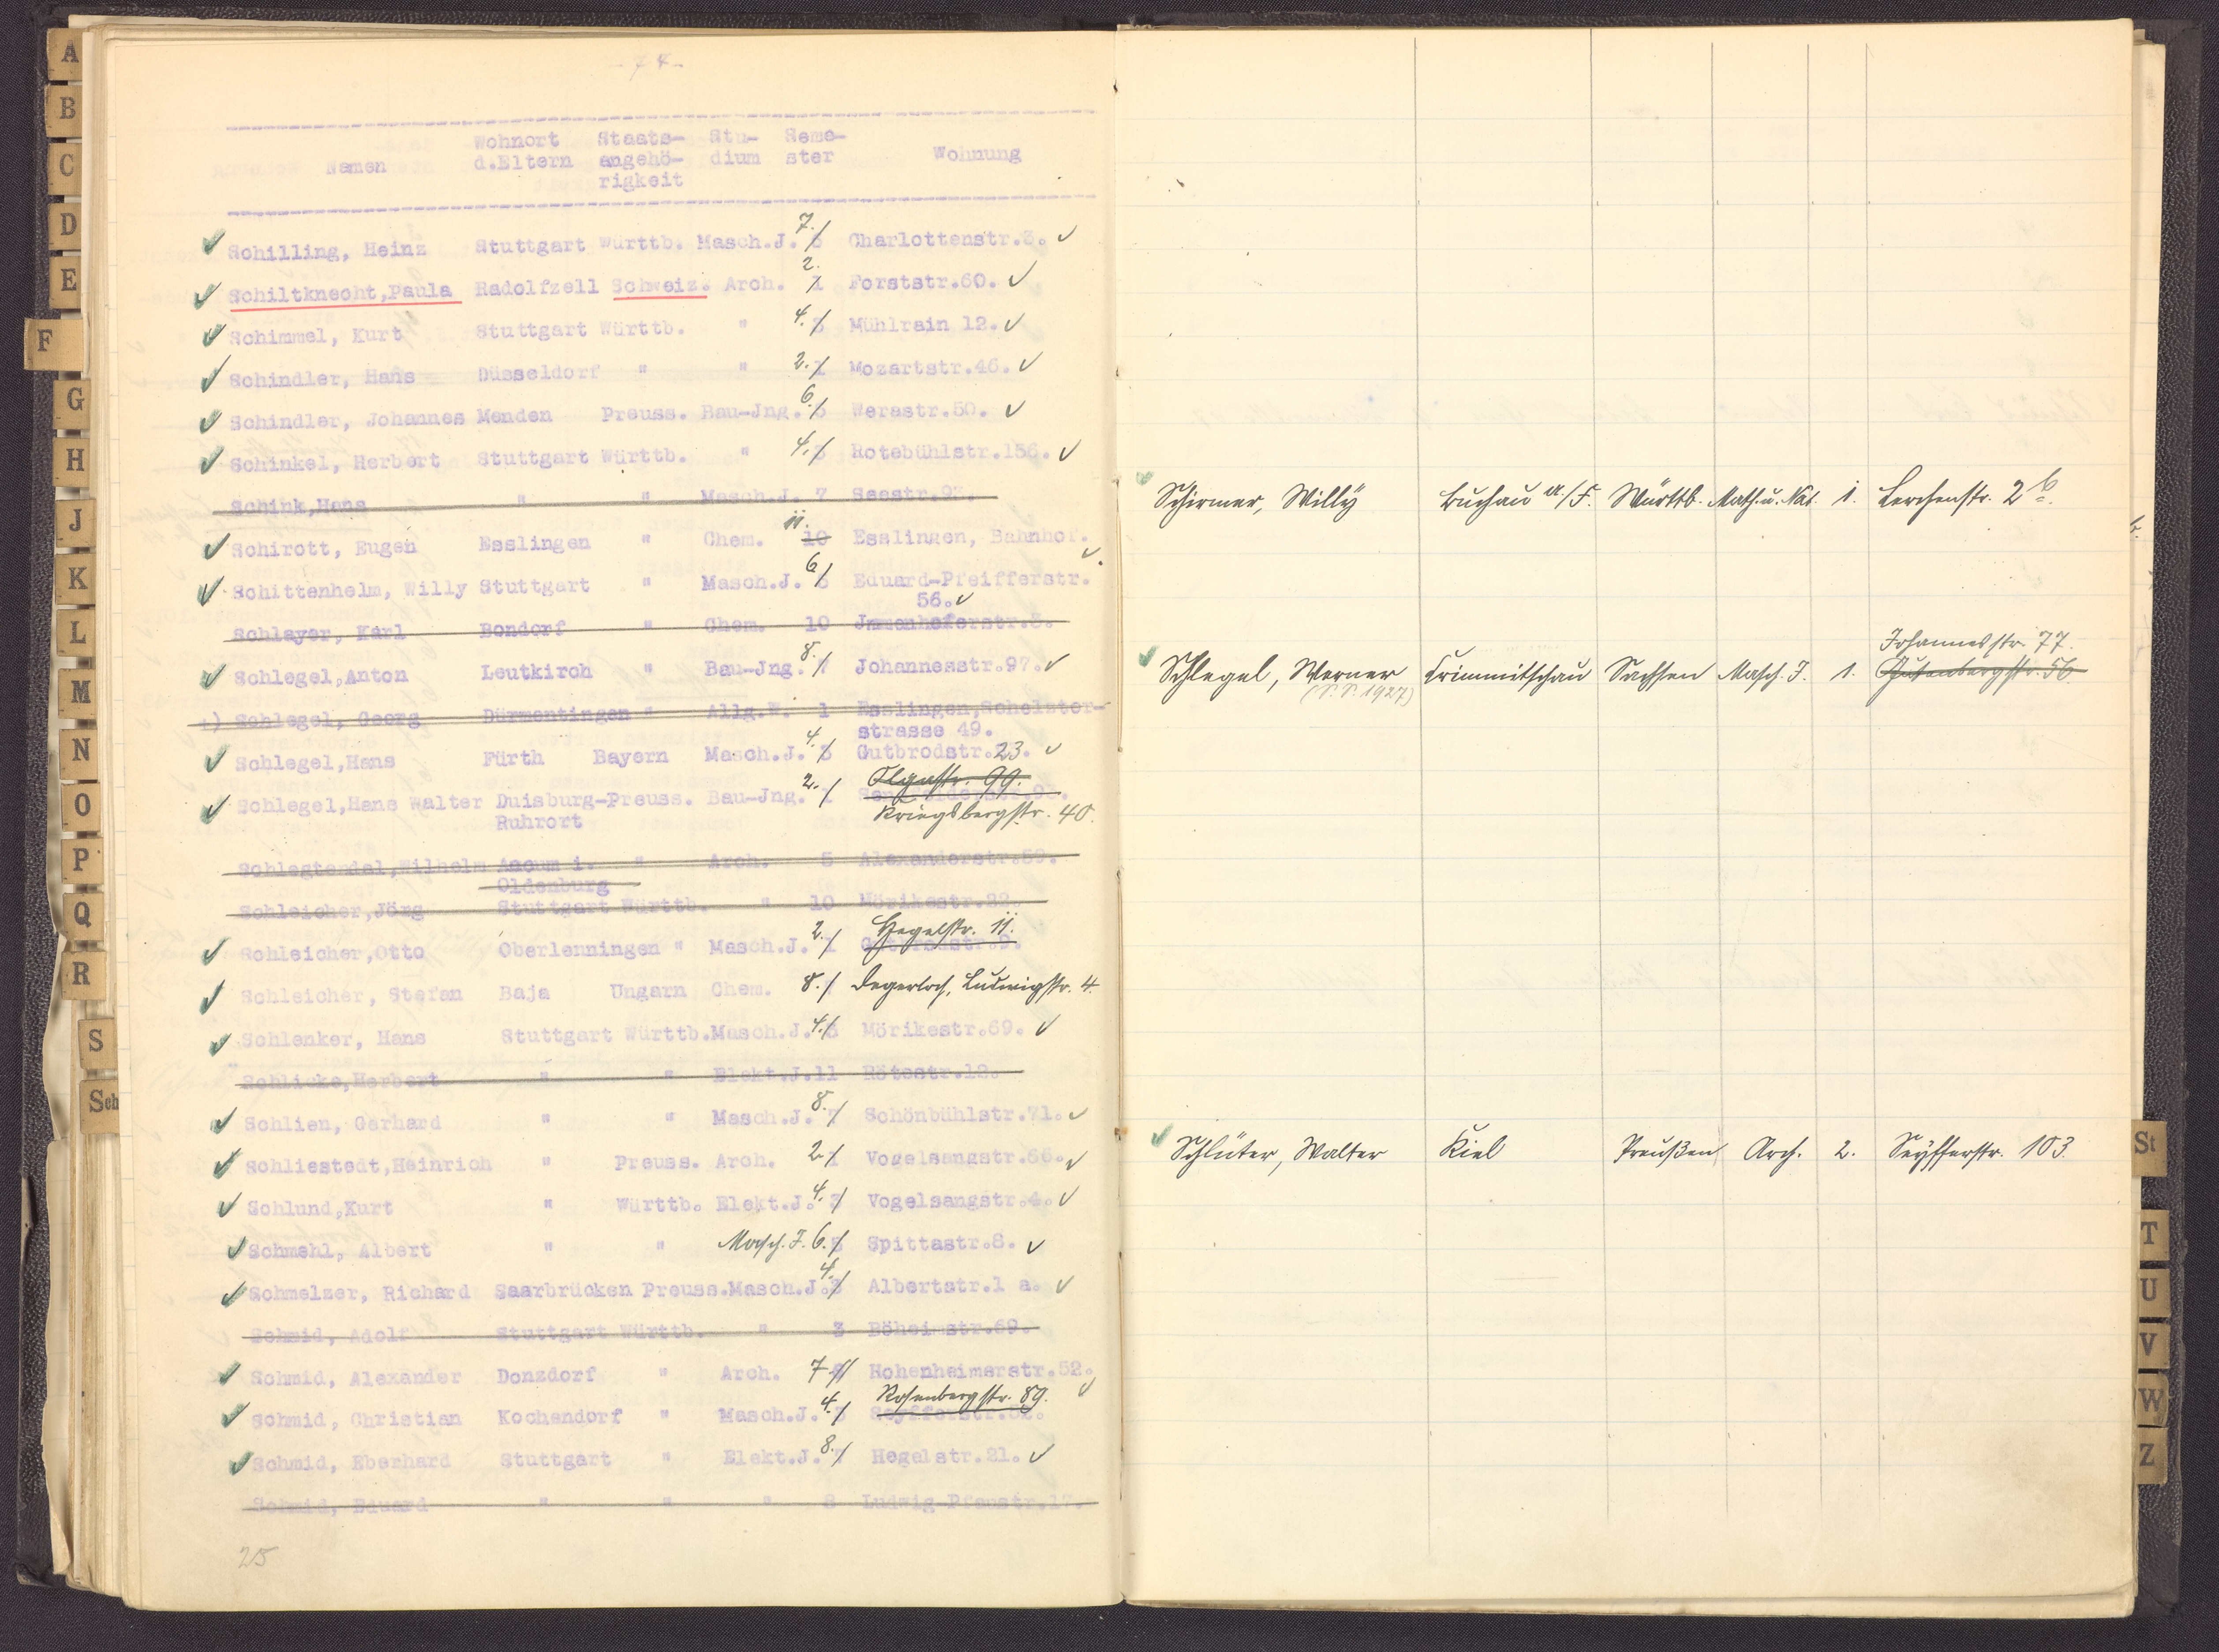 - 74 -
Wohnort Staats- Stu- Seme-
Namen d.Eltern angehö- dium ster Wohnung
rigkeit
Schilling, Heinz Stuttgart Württb. Masch.J. 7. Charlottenstr.3.
Schiltknecht,Paula Radolfzell Schweiz. Arch. 2. 1 Forststr.60.
Schimmel, Kurt Stuttgart Württb. " 4. 3 Mühlrain 12.
Schindler, Hans Düsseldorf " " 2. 1 Mozartstr.46.
Schindler, Johannes Menden Preuss. Bau-Jng. 6. 5 Werastr.50.
Schinkel, Herbert Stuttgart Württb. " 4. 3 Rotebühlstr.156.
Schink,Hans " " Masch.J. 7 Seestr.
Schirott, Eugen Esslingen " Chem. 11. 10 Esslingen, Bahnhof.
Schittenhelm, Willy Stuttgart " Masch.J. 6 Eduard-Pfeifferstr.
56.
Schlayer, Karl Bondorf " Chem. 10 Jmmenhoferstr.3.
Schlegel,Anton Leutkirch " Bau-Jng. 8. 7 Johannesstr.97.
+) Schlegel, Georg Dürmentingen " Allg.W. 1 Esslingen,Schelztor-
strasse 49.
Schlegel,Hans Fürth Bayern Masch.J. 4. 3 Gutbrodstr.23.
Olgastr. 99.
Schlegel,Hans Walter Duisburg-Preuss. Bau-Jng. 2. 1
Ruhrort Kriegsbergstr. 40.
Schlegtendal,Wilhelm Accum i. " Arch. 5 Alexanderstr.59.
Oldenburg
Schleicher,Jörg Stuttgart Württb. " 10 Mörikestr.22.
Hegelstr. 11.
Schleicher,Otto Oberlenningen " Masch.J. 2. 1
Schleicher, Stefan Baja Ungarn Chem. 8. Degerloch, Ludwigstr. 4.
Schlenker, Hans Stuttgart Württb.Masch.J. 4. 3 Mörikestr.69.
Schlicke,Herbert " " Elekt.J.11 Rötestr.12.
Schlien, Gerhard " " Masch.J. 8. 7 Schönbühlstr.71.
Schliestedt,Heinrich " Preuss. Arch. 2. 1 Vogelsangstr.66.
Schlund,Kurt " Württb. Elekt.J. 4. 3 Vogelsangstr.4.
Schmehl, Albert " " Masch. J. 6. Spittastr.8.
Schmelzer, Richard Saarbrücken Preuss.Masch.J. 4. 3 Albertstr.1 a.
Schmid, Adolf Stuttgart Württb. " 3 Böheimstr.69.
Schmid, Alexander Donzdorf " Arch. 7 Hohenheimerstr.52.
Rosenbergstr. 89.
Schmid, Christian Kochendorf " Masch.J. 4. 3
Schmid, Eberhard Stuttgart " Elekt.J. 8. 7 Hegelstr.21.
Schmid, Eduard " " " 8 Ludwig Pfaustr.17.
25
Schirmer, Willy Buchau a./F. Württb. Math. u. Nat. 1. Lerchenstr. 2 b.
Johannesstr. 77.
Schlegel, Werner Crimmitschau Sachsen Masch. J. 1. Gutenbergstr. 56.
(S.S. 1927)
Schlüter, Walter Kiel Preußen Arch. 2. Seyfferstr. 103.
A
B
C
D
E
F
G
H
J
K
L
M
N
O
P
Q
R
S
Sch
St
T
U
V
W
Z